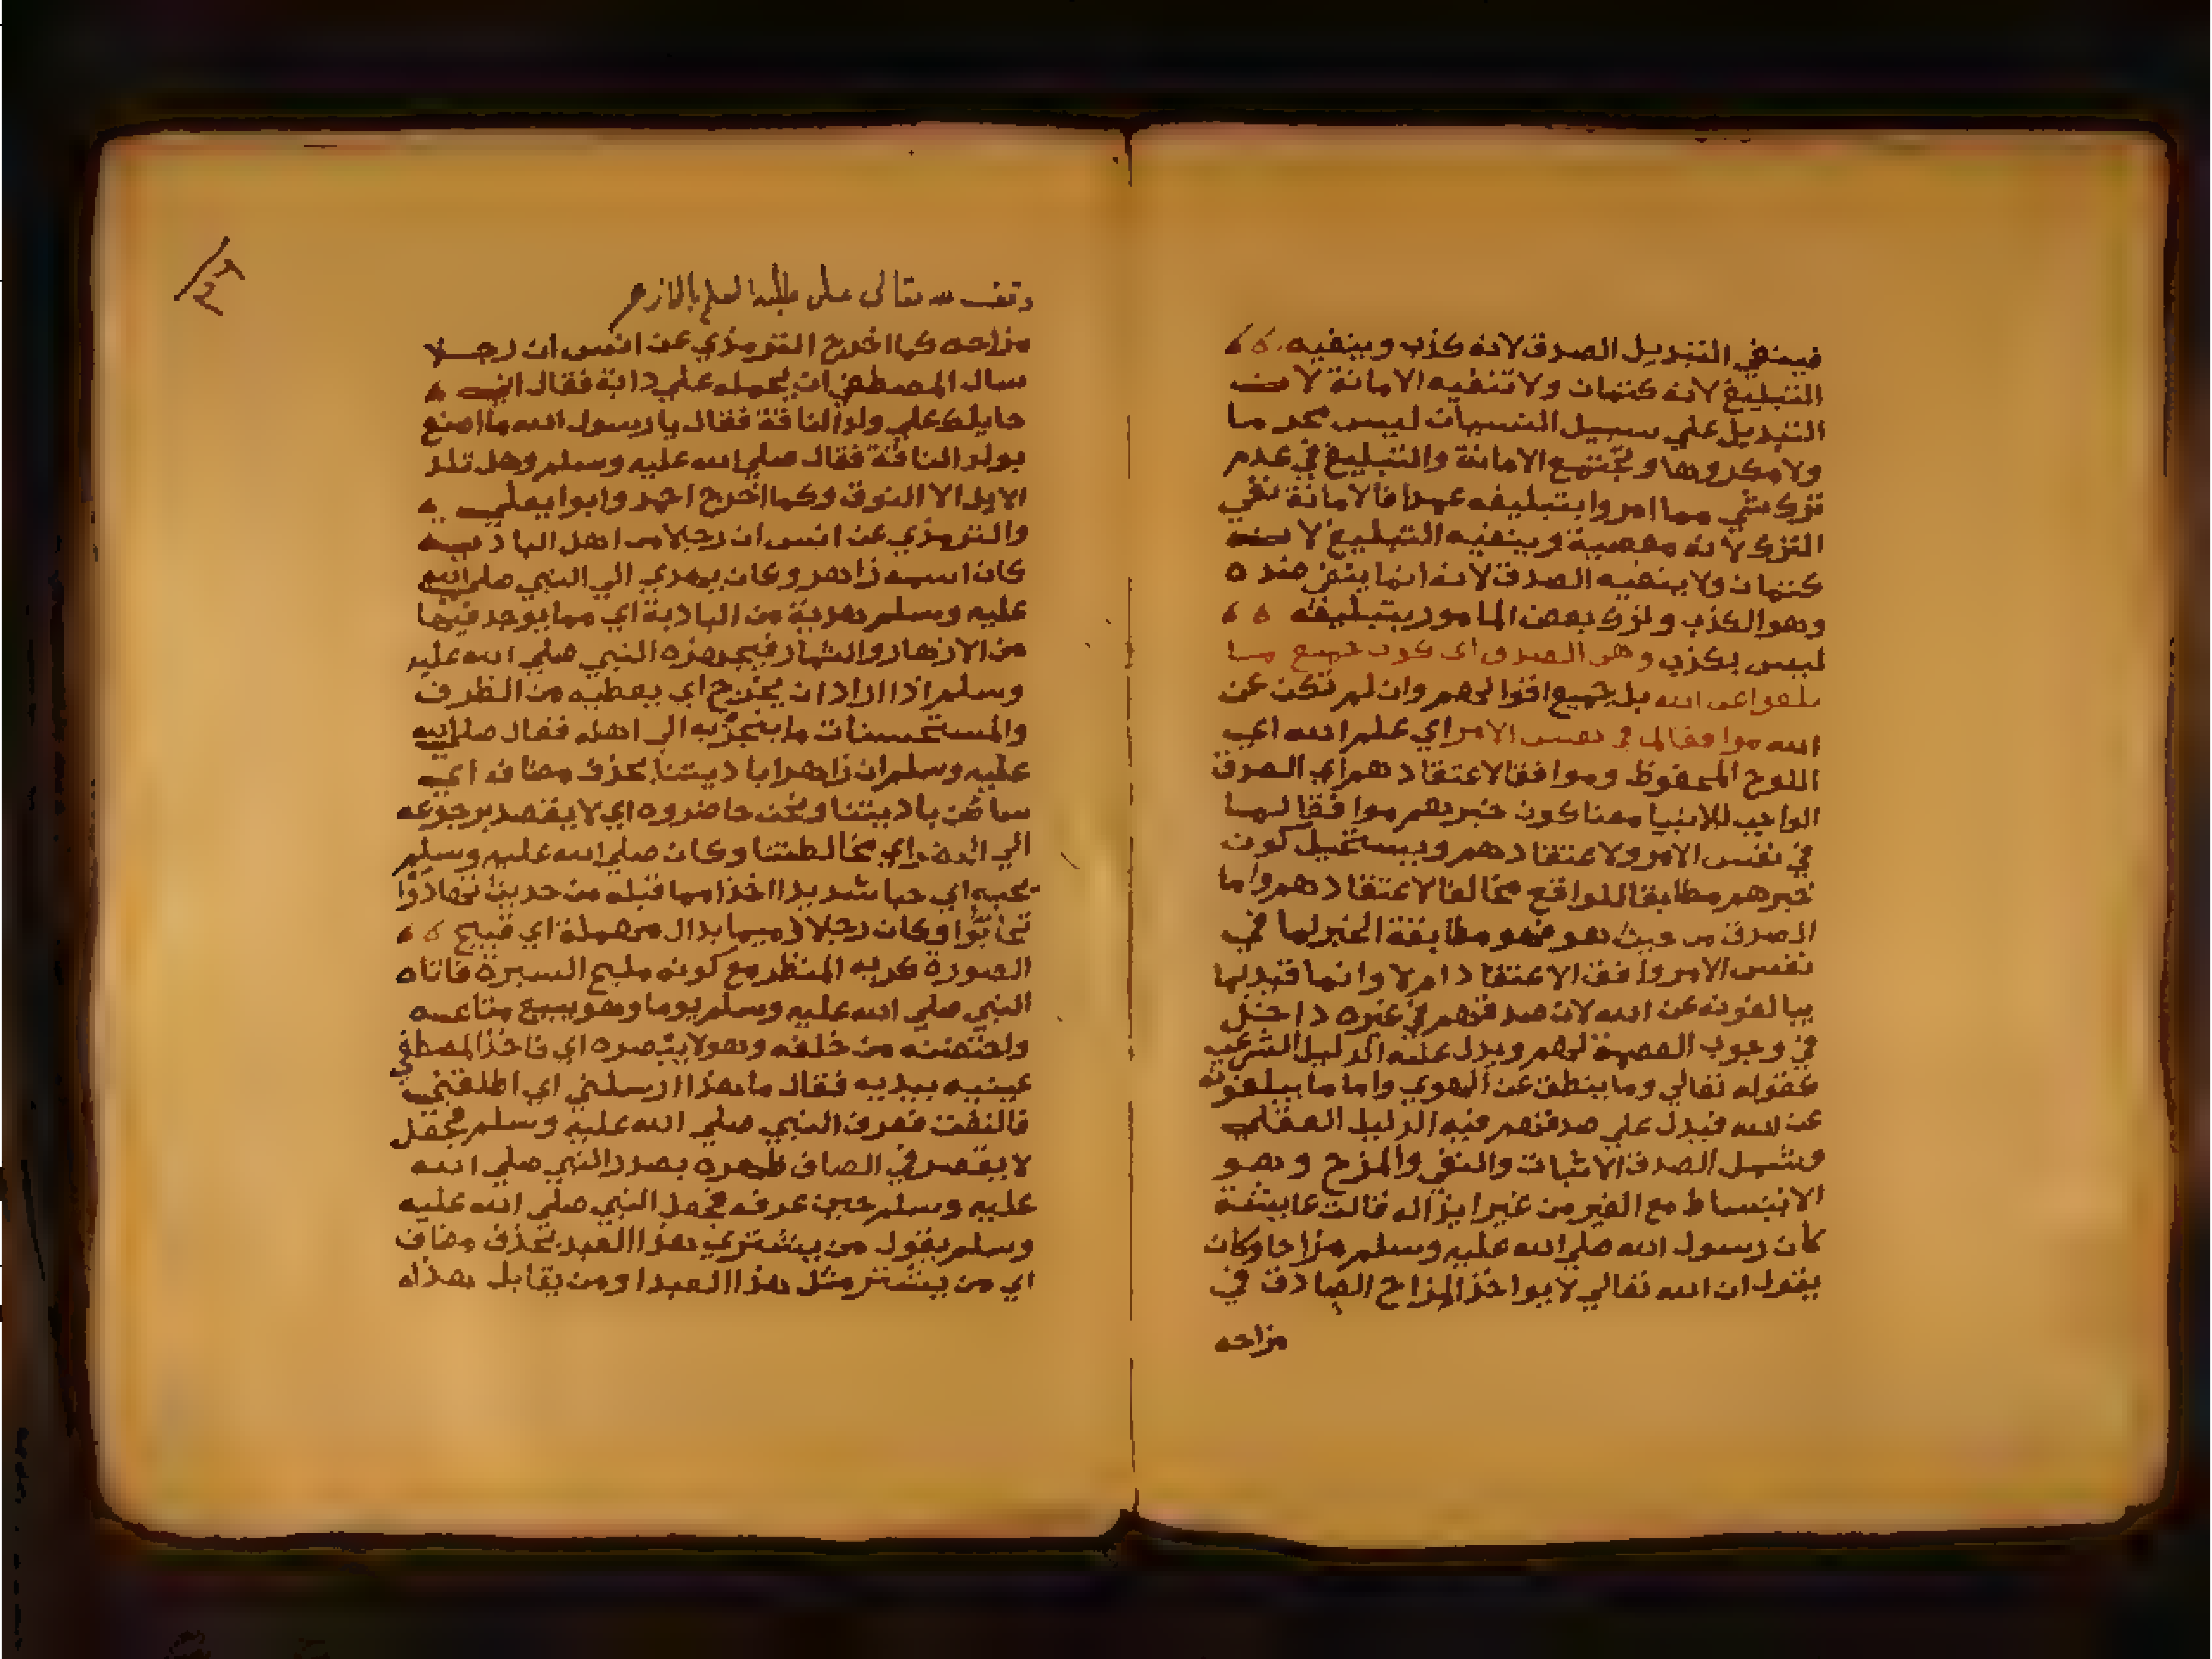 فينفي التبديل الصدق لانه كذب وينفيه
التبليغ لانه كتمان ولا تنفيه الامانة لان
التبديل علي سبيل النسيان ليس محرما
ولا مكروها وتجتمع الامانة والتبليغ في عدم
ترك شي مما امروا بتبليغه عمدا فالامانة تنفي
الترك لانه معصية وينفيه التبليغ لانه
كتمان ولا ينفيه الصدق لانه انما ينفي ضده
وهو الكذب وترك بعض المامور بتبليغه
ليس بكذب وهو الصدق اي كون جميع ما
بلغوا عن الله بل جميع اقوالهم وان لم تكن عن
الله موافقا لما في نفس الامر اي علم الله اي
اللوح المحفوظ وموافقا لاعتقادهم اي الصدق
الواجب للانبيا معنا كون خبرهم موافقا لما
في نفس الامر ولاعتقادهم ويستحيل كون
خبرهم مطابقا للواقع مخالفا لاعتقادهم واما
الصدق من حيث هو فهو مطابقة الخبر لما في
نفس الامر وافق الاعتقاد ام لا وانما قيد بما
يبالغونه عن الله لان صدقهم في غيره داخل
في وجوب العصمة لهم ويدل عليه الدليل الشرعي
كقوله تعالي وما ينطق عن الهوي واما ما يبلغونه
عن الله فيدل علي صدقهم فيه الدليل العقلي
وشمل الصدق الاثبات والنفي والمزح وهو
الانبساط مع الغير من غير ايذا له قالت عايشة
كان رسول الله صلي الله عليه وسلم مزاحا وكان
يقول ان الله تعالي لا يواخذ المزاح الصادق في
مزاحه
وقف لله تعالى على طلبة العلم بالازهر
مزاحه كما اخرج الترمذي عن انس ان رجلا
سال المصطفي ان يحمله علي دابة فقال اني
حاملك علي ولد الناقة فقال يا رسول الله ما اصنع
بولد الناقة فقال صلي الله عليه وسلم وهل تلد
الابل الا النوق وكما اخرج احمد وابوا يعلي
والترمذي عن انس ان رجلا من اهل البادية
كان اسمه زاهر وكان يهدي الي النبي صلي الله
عليه وسلم هدية من البادية اي مما يوجد فيها
من الازهار والثمار فيجهزه النبي صلي الله عليه
وسلم اذا اراد ان يخرج اي يعطيه من الظرف
والمستحسنات ما يتجهز به الي اهله فقال صلي الله
عليه وسلم ان زاهرا باديتنا بحذف مضاف اي
ساكن باديتنا ونحن حاضروه اي لا يقصد برجوعه
الي الحضر اي مخالطتنا وكان صلي الله عليه وسلم
يحبه اي حبا شديدا اخذا مما قبله من حديث تهادوا
تحابوا وكان رجلا دميما بدال مهملة اي قبيح
الصورة كريه المنظر مع كونه مليح السيرة فاتاه
النبي صلي الله عليه وسلم يوما وهو يبيع متاعه
واحتضنه من خلفه وهو لا يبصره اي فاخذ المصطفي
عينيه بيديه فقال ما هذا ارسلني اي اطلقني
فالتفت فعرف النبي صلي الله عليه وسلم فجعل
لا يقصر في الصاق ظهره بصدر النبي صلي الله
عليه وسلم حين عرفه فجعل النبي صلي الله عليه
وسلم يقول من يشتري هذا العبد بحذف مضاف
اي من يشتر مثل هذا العبد او من يقابل هذا